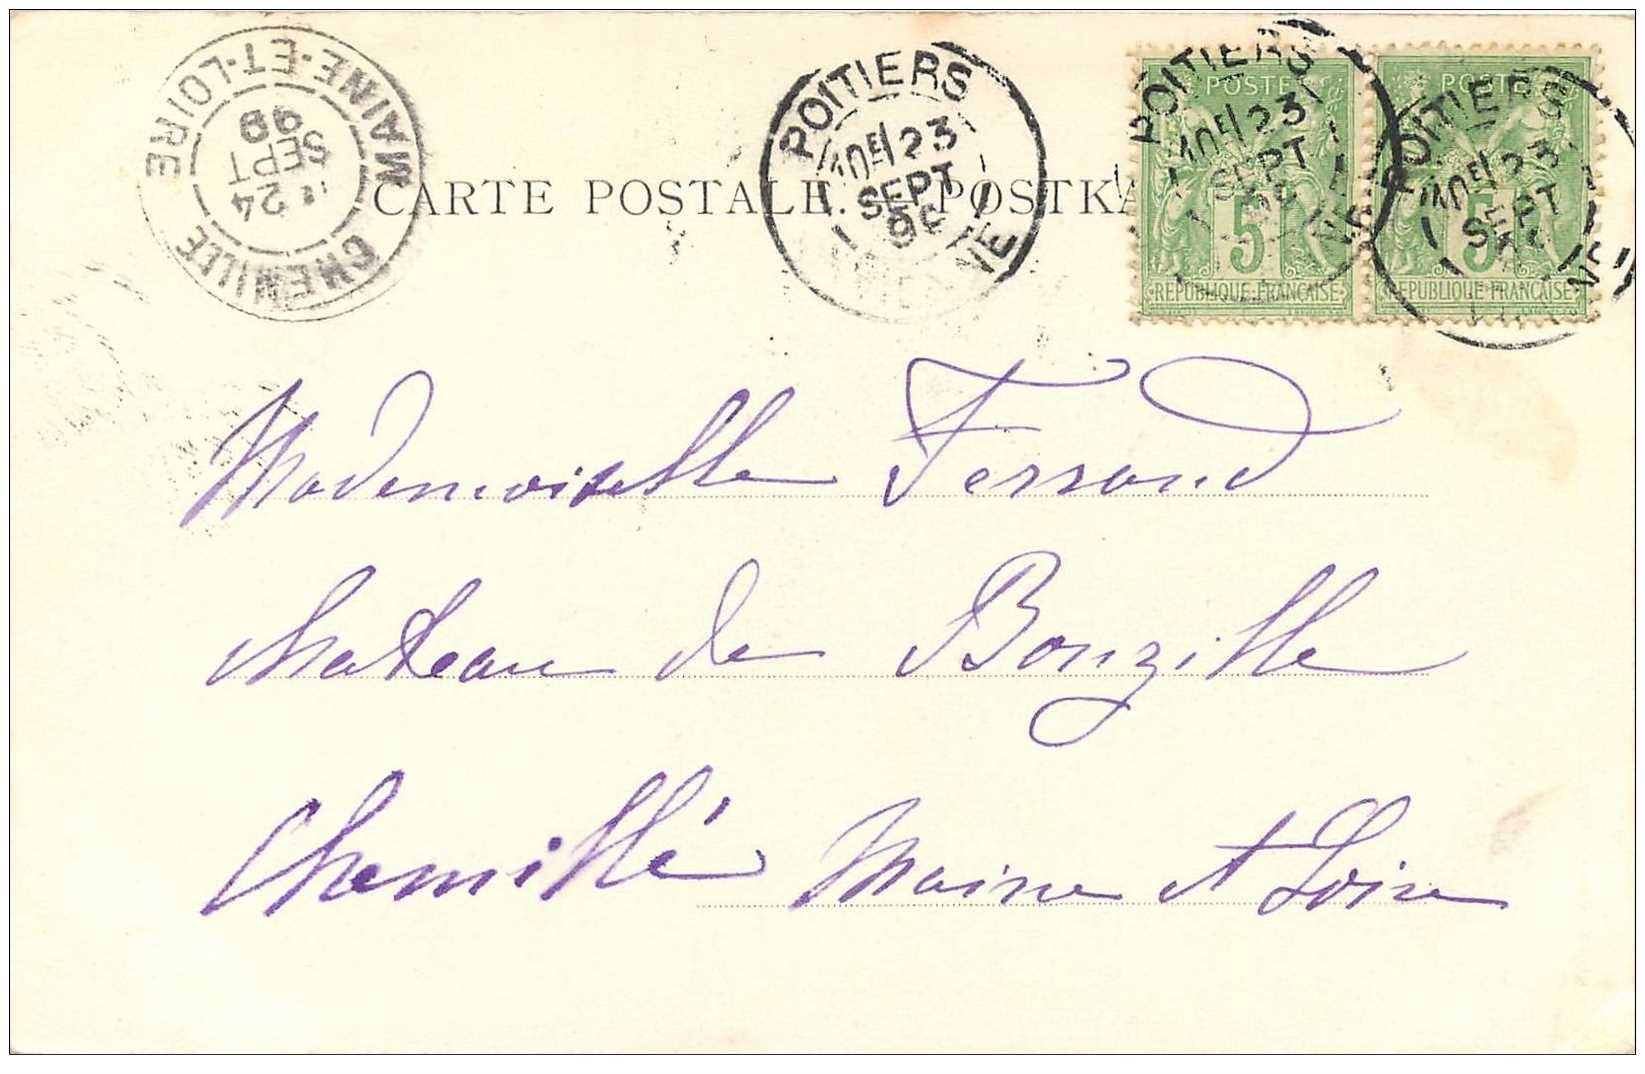 MAINE-ET-LOIRE
24
SEPT
98
CHEMILLE
POITIERS
10E/23
SEPT
98
VIENNE
CARTE POSTALE. POSTKA
POITIERS
10E/23
SEPT
POSTES
5
REPUBLIQUE FRANCAISE
POITIERS
10E/23
SEPT
POSTES
5
REPUBLIQUE FRANCAISE
Mademoiselle Ferrand
chateau de Bouzille
Chemillé Maine et Loire